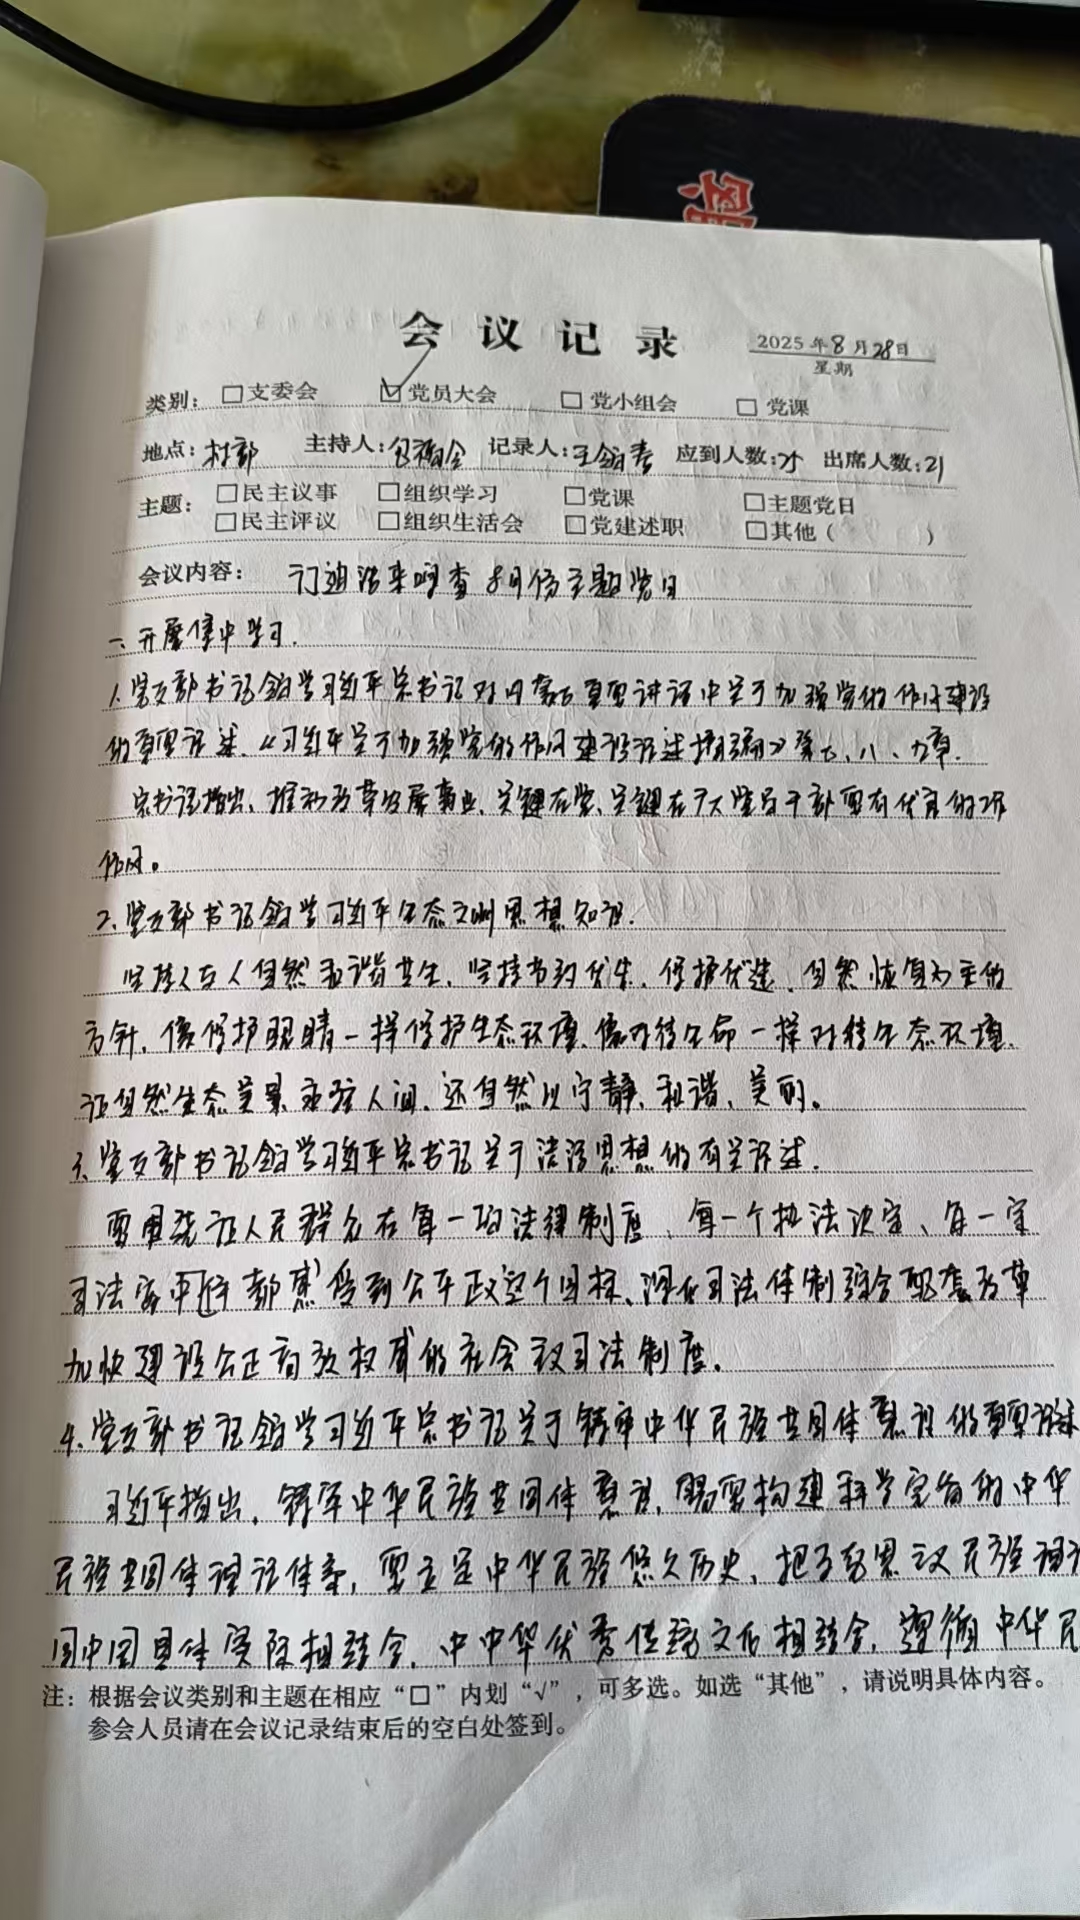 会议记录
2025年8月28日
星期
类别：□支委会 ☑党员大会 □党小组会 □党课
地点：村部 主持人：包福全 记录人：王 春 应到人数： 出席人数：21
主题：□民主议事 □组织学习 □党课 □主题党日
□民主评议 □组织生活会 □党建述职 □其他（ ）
会议内容： 8月份主题党日
一、开展集中学习.
1.党支部书记领学习近平总书记对内蒙古重要讲话中关于加强党的作风建设
的重要论述.《习近平关于加强党的作风建设论述摘编》第七、八、九章.
总书记指出、推动改革发展事业、关键在党、关键在广大党员干部要有优良的
作风。
2.党支部书记领学习近平生态文明思想知识.
坚持人与人自然和谐共生.坚持节约优先、保护优先、自然恢复为主的
方针、像保护眼睛一样保护生态环境、像对待生命一样对待生态环境.
让自然生态美景永驻人间、还自然以宁静、和谐、美丽。
3.党支部书记领学习近平总书记关于法治思想的有关论述.
要围绕让人民群众在每一项法律制度、每一个执法决定、每一宗
司法案件中都感受到公平 这个目标、深化司法体制综合配套改革
加快建设公正高效权威的社会主义司法制度.
4.党支部书记领学习近平总书记关于铸牢中华民族共同体意识的重要论述
习近平指出，铸牢中华民族共同体意识，需要构建科学完备的中华
民族共同体理论体系，要立足中华民族悠久历史，把马克思主义民族理论
同中国具体实际相结合，中华优秀传统文化相结合，遵循中华民
注：根据会议类别和主题在相应“□”内划“√”，可多选。如选“其他”，请说明具体内容。
参会人员请在会议记录结束后的空白处签到。